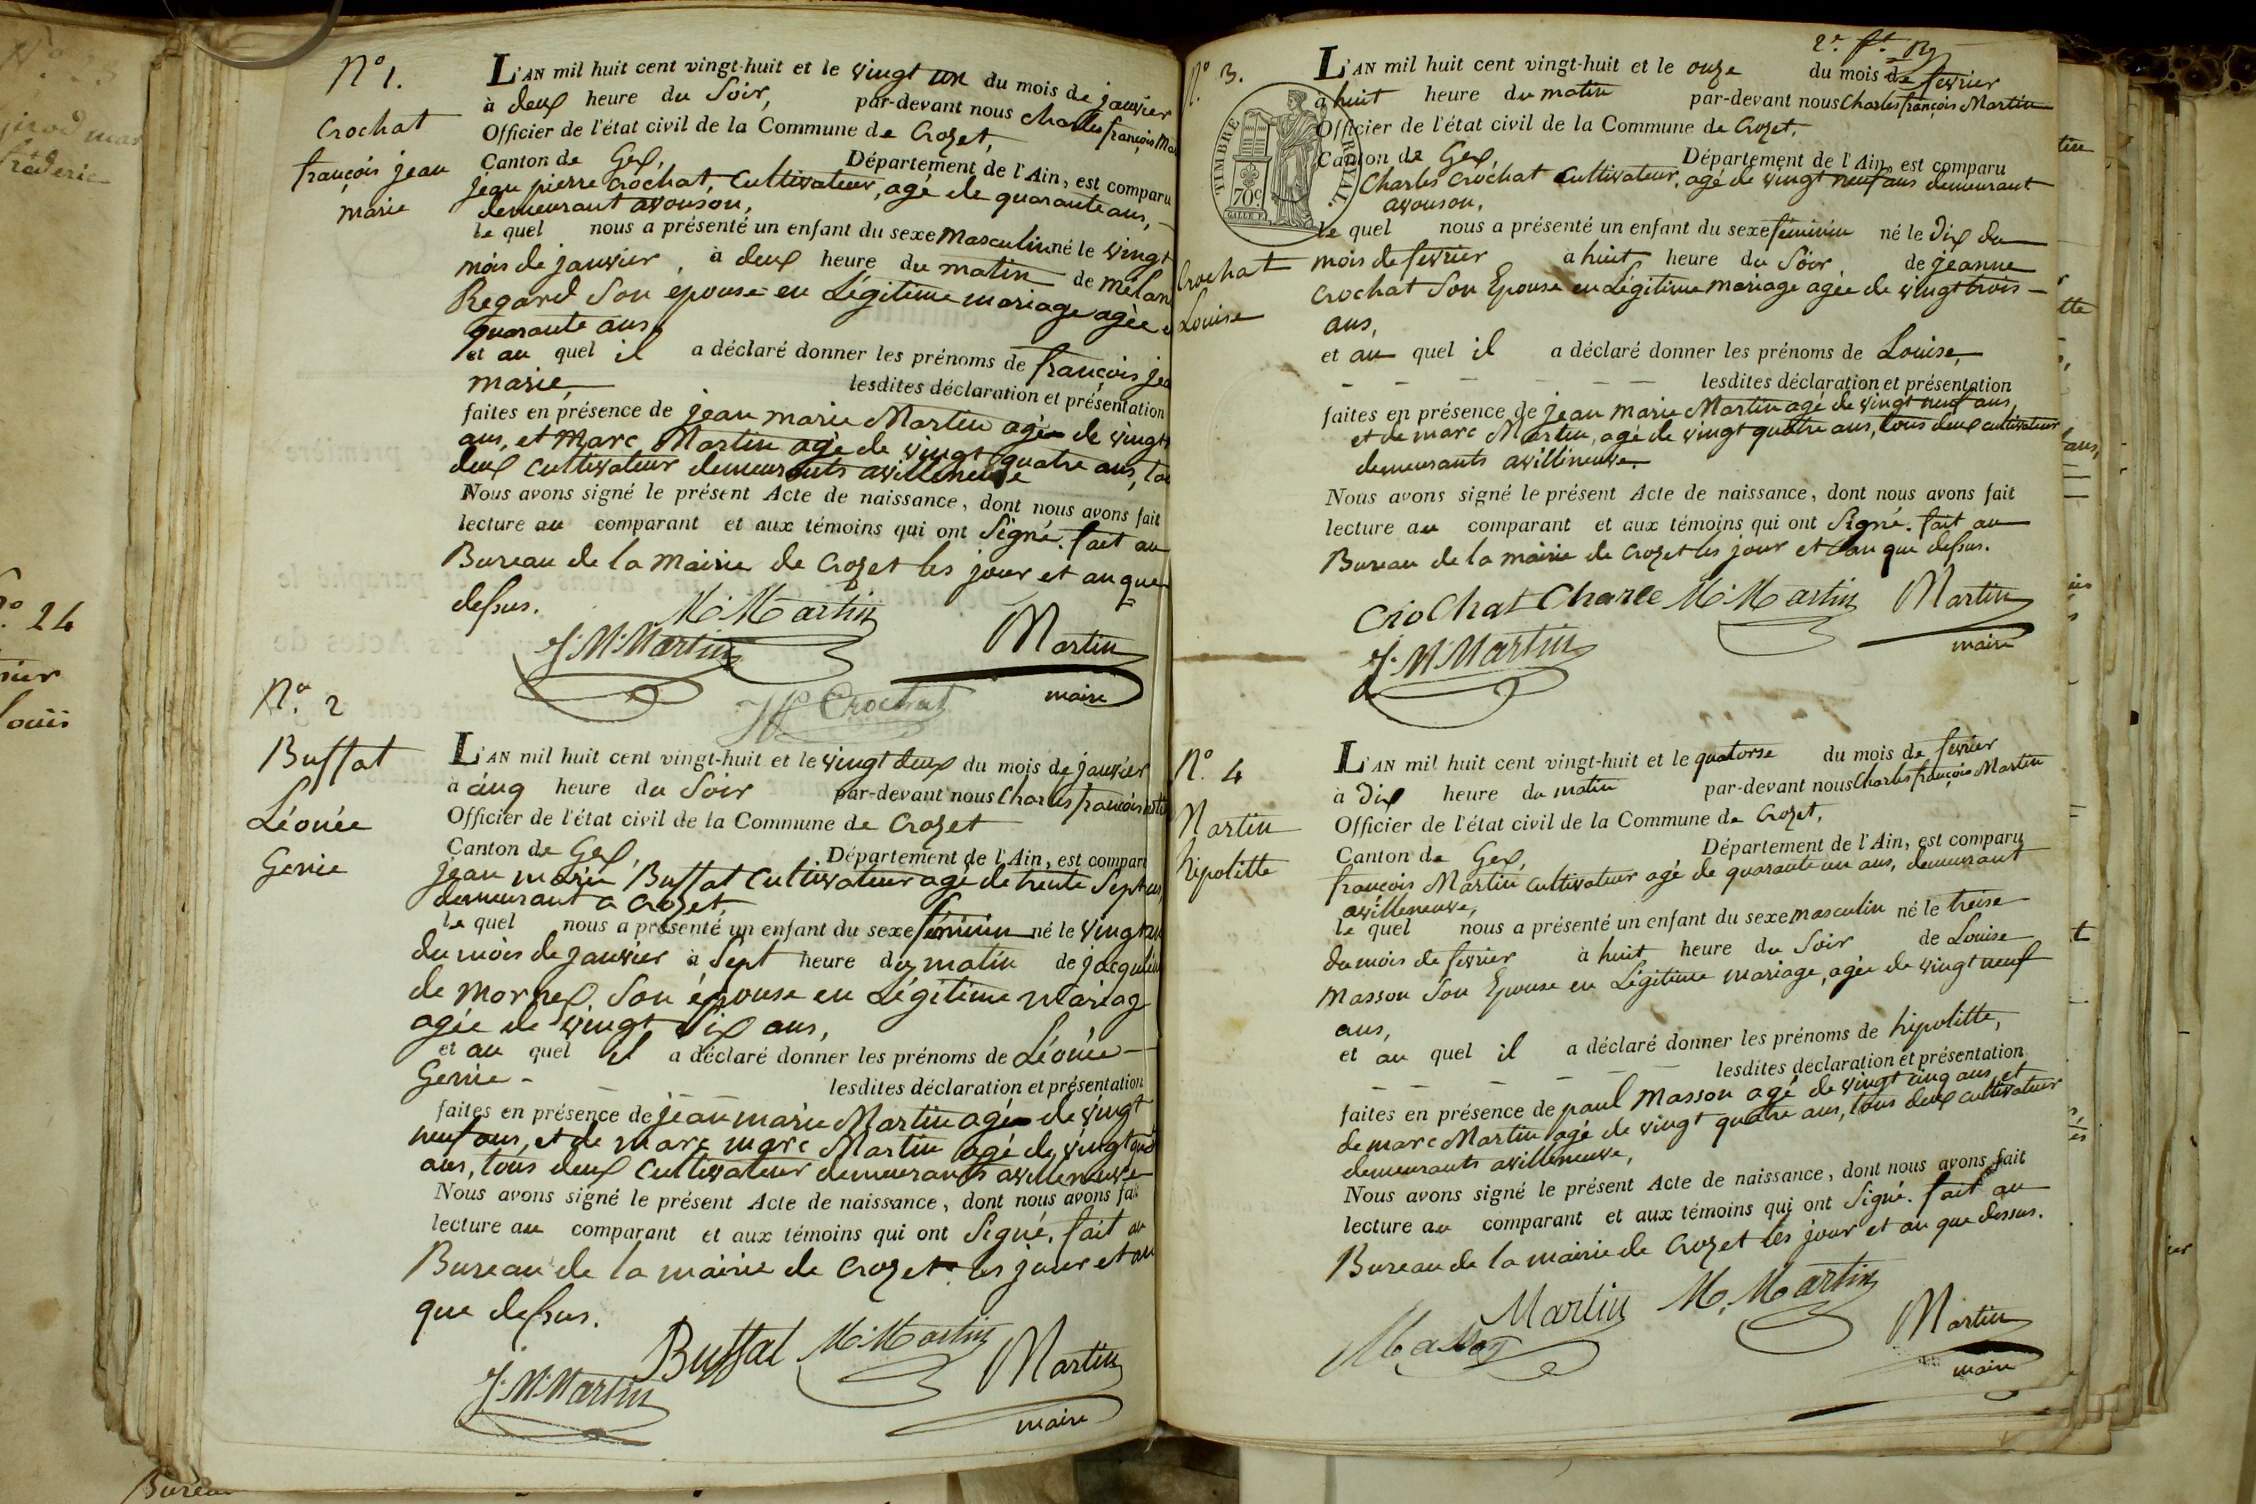 N° 1.
Crochat
françois jean
marie
L'AN mil huit cent vingt-huit et le vingt un du mois de janvier
à deux heure du Soir, par-devant nous Charles françois
Officier de l'état civil de la Commune de Crozet,
Canton de Gex, Département de l'Ain, est comparu
jean pierre Crochat, Cultivateur, agé de quarante ans,
demeurant avouson,
le quel nous a présenté un enfant du sexe masculin né le vingt
mois de janvier, à deux heure du matin de
Regard Son epouse en Légitime mariage agèe
quarante ans,
et au quel il a déclaré donner les prénoms de françois
marie, lesdites déclaration et présentation
faites en présence de jean marie Martin agée de vingt
ans, et Marc Martin agé de vingt quatre ans,
deux Cultivateur demeurants avilleneuve
Nous avons signé le présent Acte de naissance, dont nous avons fait
lecture au comparant et aux témoins qui ont Signé. fait au
Bureau de la Mairie de Crozet les jour et an que
dessus.
M. Martin
J. M. Martin Martin
maire
Crochat
N° 2
Buffat
Léonée
Genie
L'AN mil huit cent vingt-huit et le vingt deux du mois de janvier
à cinq heure du Soir par-devant nous Charles françois
Officier de l'état civil de la Commune de Crozet
Canton de Gex, Département de l'Ain, est comparu
jean marie Buffat Cultivateur agé de trente Sept ans,
demeurant a Crozet,
le quel nous a présenté un enfant du sexe féminin né le vingt
du mois de janvier à Sept heure du matin de
de Mornex, Son épouse en Légitime Mariage
agée de vingt Six ans,
et au quel il a déclaré donner les prénoms de Léonée
Genie - lesdites déclaration et présentation
faites en présence de jean marie Martin agée de vingt
neuf ans, et de marc marc Martin agé de vingt
ans, tous deux Cultivateur demeurants avilleneuve
Nous avons signé le présent Acte de naissance, dont nous avons
lecture au comparant et aux témoins qui ont Signé, fait au
Bureau de la mairie de Crozet les jour et an
que dessus.
Buffat M. Martin Martin
J. M. Martin
maire
N° 3.
TIMBRE ROYAL.
70c
Crochat
Louise
L'AN mil huit cent vingt-huit et le onze du mois de fevrier
à huit heure du matin par-devant nous Charles françois Martin
Officier de l'état civil de la Commune de Crozet,
Canton de Gex, Département de l'Ain, est comparu
Charles Crochat Cultivateur, agé de vingt neuf ans demeurant
avouson,
le quel nous a présenté un enfant du sexe féminin né le Dix du
mois de fevrier à huit heure du Soir de jeanne
Crochat Son Epouse en Légitime mariage agée de vingt trois
ans,
et au quel il a déclaré donner les prénoms de Louise,
lesdites déclaration et présentation
faites en présence de jean marie Martin agé de vingt neuf ans,
et de marc Martin, agé de vingt quatre ans, tous deux cultivateur
demeurants avilleneuve.
Nous avons signé le présent Acte de naissance, dont nous avons fait
lecture au comparant et aux témoins qui ont Signé. fait au
Bureau de la mairie de Crozet les jour et an que dessus.
Crochat Charle M. Martin Martin
J. M. Martin maire
N° 4
Martin
hipolitte
L'AN mil huit cent vingt-huit et le quatorse du mois de fevrier
à Dix heure du matin par-devant nous Charles françois Martin
Officier de l'état civil de la Commune de Crozet,
Canton de Gex, Département de l'Ain, est comparu
françois Martin cultivateur agé de quarante un ans, demeurant
avilleneuve,
le quel nous a présenté un enfant du sexe masculin né le treise
du mois de fevrier à huit heure du Soir de Louise
Masson Son Epouse en Légitime mariage, agée de vingt neuf
ans,
et au quel il a déclaré donner les prénoms de hipolitte,
lesdites déclaration et présentation
faites en présence de paul Masson agé de vingt cinq ans et
de marc Martin agé de vingt quatre ans, tous deux cultivateur
demeurants avilleneuve,
Nous avons signé le présent Acte de naissance, dont nous avons fait
lecture au comparant et aux témoins qui ont Signé. fait au
Bureau de la mairie de Crozet les jour et an que dessus.
Martin M. Martin
Masson Martin
maire